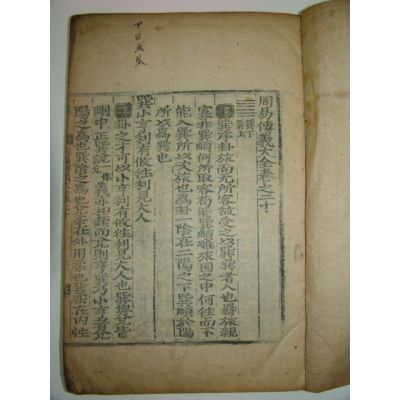 周易傳義大全卷之二十
巽下
巽上
傳巽序卦旅而无所容故受之以巽巽者入也羈旅親
寡非巽順何所取容苟能巽順雖旅困之中何往而不
能入巽所以次旅也爲卦一陰在二陽之下巽順於陽
所以爲巽也
巽小亨利有攸往利見大人
傳卦之才可以小亨利有攸往利見大人也巽與兌皆
剛中正巽說義亦相類而兌則亨巽乃小亨者兌
陽之爲也巽陰之爲也兌柔在外用柔也巽柔在內性